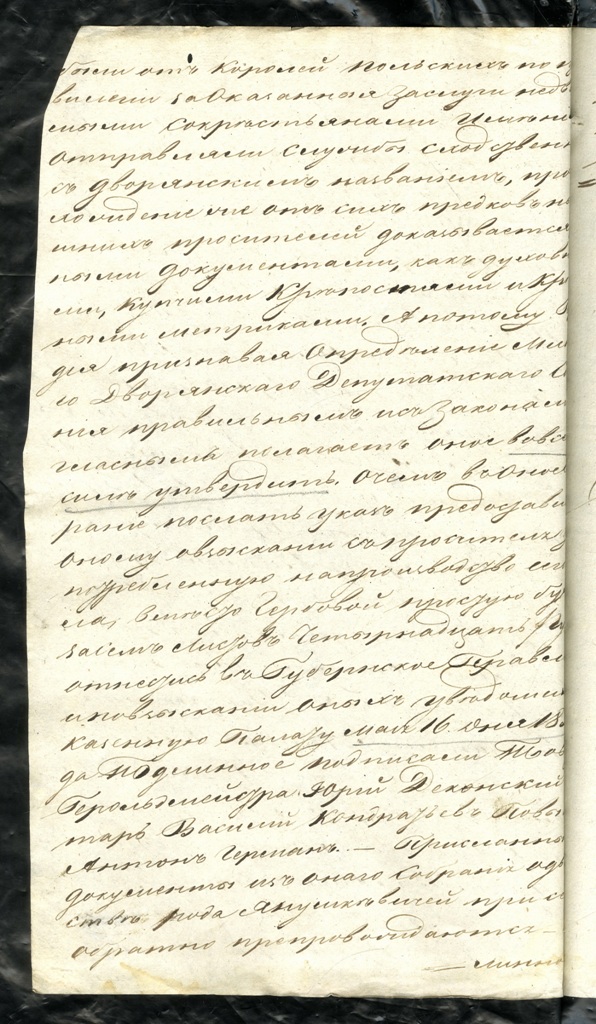 были отъ Королей польскихъ по п
вилегіи за Оказанныя заслуги недв
мыми сокрестьянами имени
отправляли службы сходствен
съ дворянскимъ названіемъ, про
хожденіе же отъ сихъ предковъ н
шнихъ просителей доказывается
ными документами, какъ духов
ми, купчими Крѣпостями и Кр
ными метриками. А потому
дія признавая Опредѣленіе Ми
го Дворянскаго Депутатскаго С
нія правильнымъ исъ Законам
гласнымъ полагаетъ оное вовс
симъ утвердить. О чемъ въ Оное
раніе послать указъ предостави
оному овзысканіи съ просителя
потребленную напроизводство сего
ла, вмѣсто Гербовой простую бу
заіемъ листовъ Четырнадцать
отнестись въ Губернское Правл
и повзысканіи оныхъ увѣдоми
казенную Палату мая 16 дня 18
да Подлинное подписали
Герольдмейстра Юрій Деконскій
тарь Василій Кондратьевъ Повы
Антонъ Германъ. — Присланны
документы изъ онаго Собранія о дв
ствѣ рода Янушкевичей при с
обратно препровождаются —
— линно